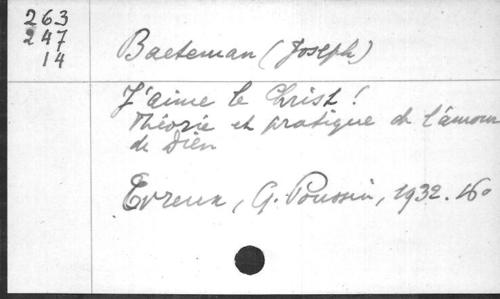 263
247
14
Baeteman (Joseph)
J'aime le Christ !
Théorie et pratique de l'amour
de Dieu
Evreux, G. Poussin, 1932. 16°